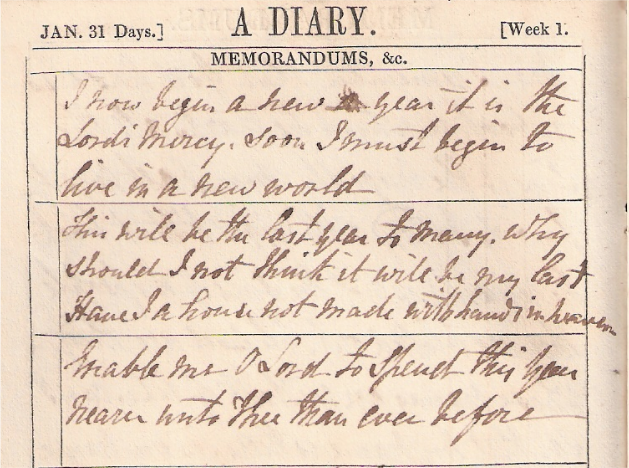 JAN. 31 Days.] A DIARY. [Week 1.
MEMORANDUMS, &c.
I now begin a new year it is the
Lords Mercy. soon I must begin to
live in a new world
This will be the last year to many. Why
should I not think it will be my last
Have I a house not made with hands in heaven
Enable me O Lord to spend this year
nearer unto Thee than ever before